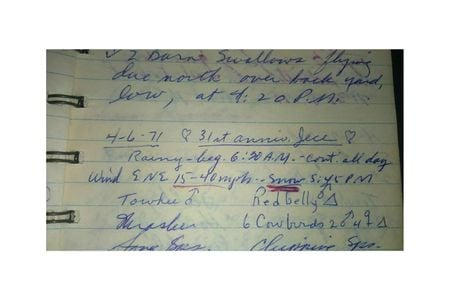 ✓ 2 Barn Swallows flying
due north over back yard,
low, at 4:20 P.M.
4-6-71 ♡ 31st anniv. Jece ♡
Rainy - beg. 6:30 A.M. - cont. all day
Wind E.N.E. 15-40 mph - Snow 5:45 P.M.
Towhee ♂ Redbelly ♂ △
Thrasher 6 Cowbirds 2♂ 4♀ △
Song Sps. Chipping Sps.